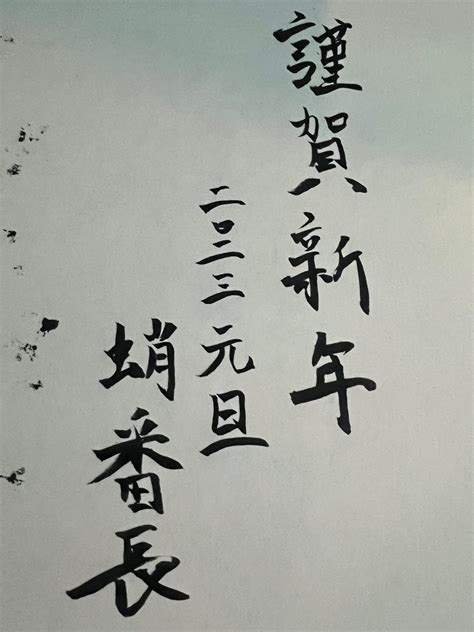 謹賀新年
二〇二三元旦
蛸番長